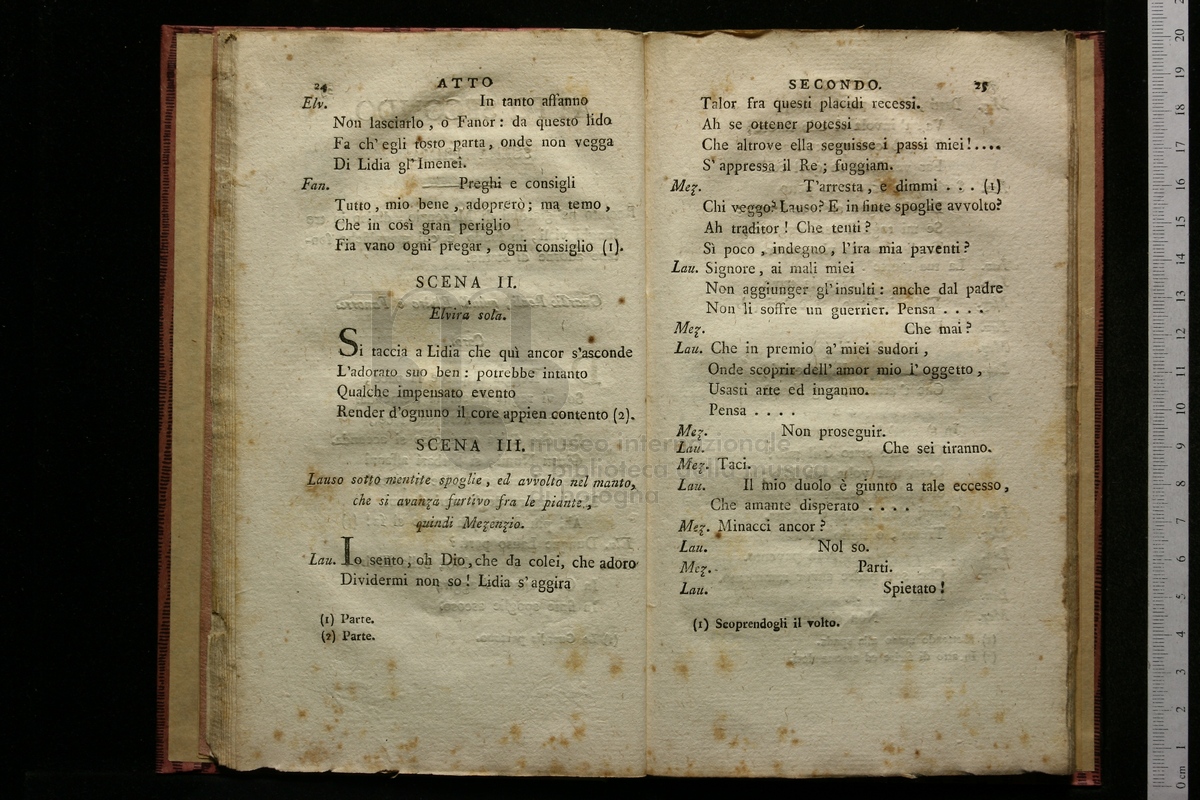 24 ATTO
Elv. In tanto affanno
Non lasciarlo, o Fanor: da questo lido
Fa ch' egli tosto parta, onde non vegga
Di Lidia gl' Imenei.
Fan. Preghi e consigli
Tutto, mio bene, adoprerò; ma temo,
Che in così gran periglio
Fia vano ogni pregar, ogni consiglio (1).
SCENA II.
Elvira sola.
Si taccia a Lidia che quì ancor s'asconde
L'adorato suo ben: potrebbe intanto
Qualche impensato evento
Render d'ognuno il core appien contento (2).
SCENA III.
Lauso sotto mentite spoglie, ed avvolto nel manto,
che si avanza furtivo fra le piante,
quindi Mezenzio.
Lau. Io sento, oh Dio, che da colei, che adoro
Dividermi non so! Lidia s'aggira
(1) Parte.
(2) Parte.
SECONDO. 25
Talor fra questi placidi recessi.
Ah se ottener potessi
Che altrove ella seguisse i passi miei!....
S' appressa il Re; fuggiam.
Mez. T'arresta, e dimmi . . . (1)
Chi veggo? Lauso? E in finte spoglie avvolto?
Ah traditor! Che tenti?
Sì poco, indegno, l'ira mia paventi?
Lau. Signore, ai mali miei
Non aggiunger gl' insulti: anche dal padre
Non li soffre un guerrier. Pensa . . . .
Mez. Che mai?
Lau. Che in premio a' miei sudori,
Onde scoprir dell' amor mio l' oggetto,
Usasti arte ed inganno.
Pensa . . . .
Mez. Non proseguir.
Lau. Che sei tiranno.
Mez. Taci.
Lau. Il mio duolo è giunto a tale eccesso,
Che amante disperato . . . .
Mez. Minacci ancor?
Lau. Nol so.
Mez. Parti.
Lau. Spietato!
(1) Scoprendogli il volto.
museo internazionale
e biblioteca della musica
di bologna
0 cm 1 2 3 4 5 6 7 8 9 10 11 12 13 14 15 16 17 18 19 20